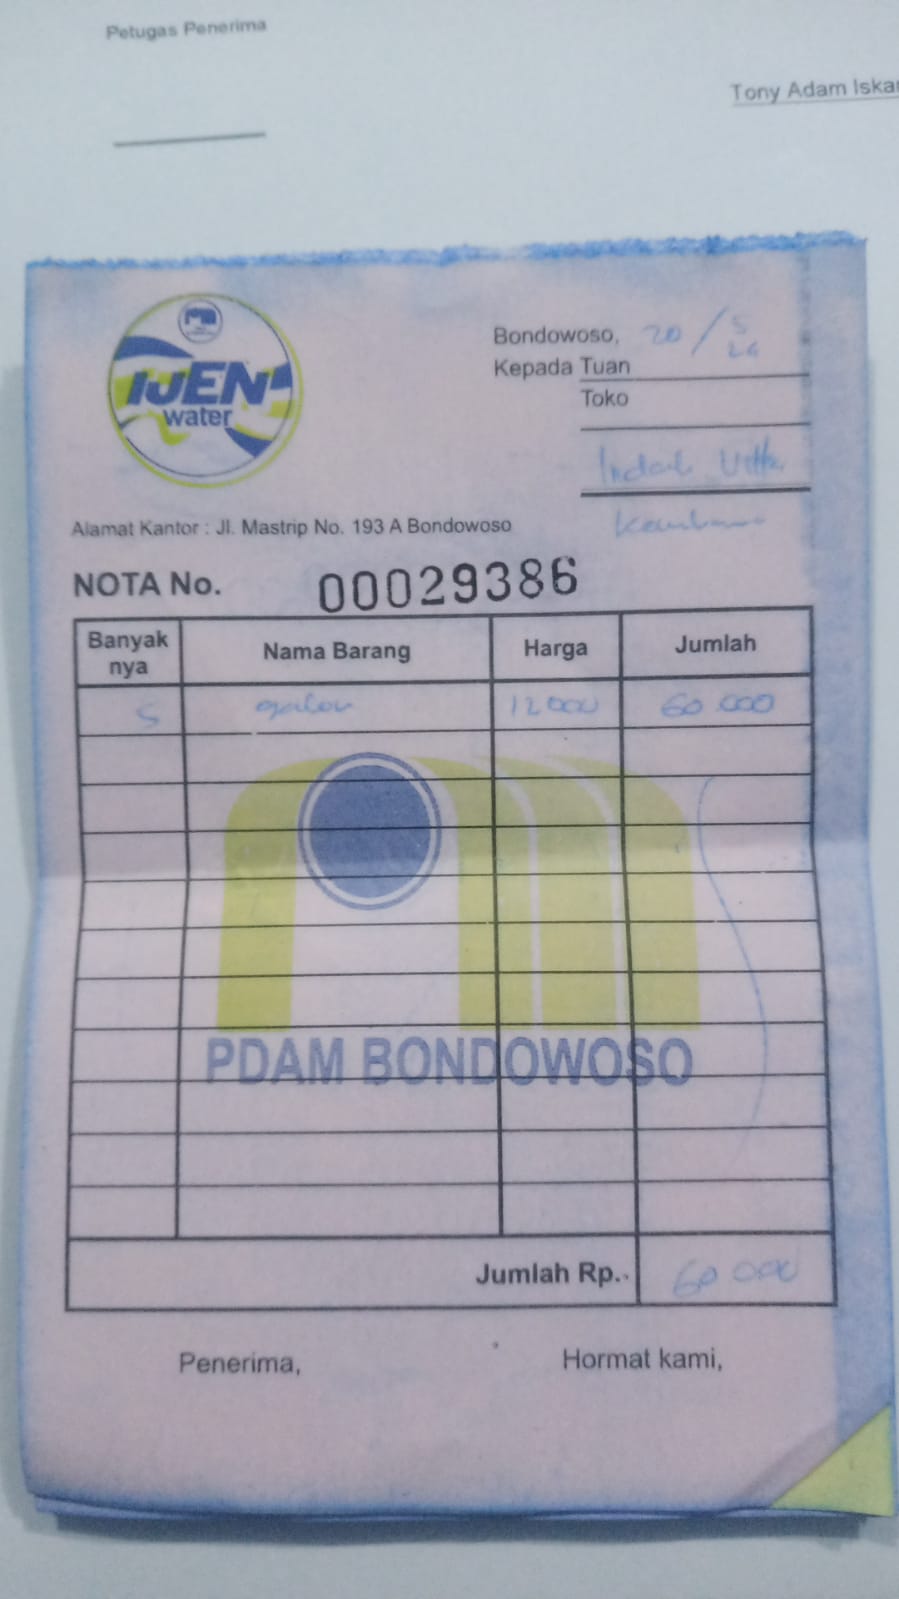 Petugas Penerima
Tony Adam Iska
IJEN
water
Bondowoso, 20/5 26
Kepada Tuan
Toko
Indah
Alamat Kantor : Jl. Mastrip No. 193 A Bondowoso
NOTA No. 00029386
Banyak nya Nama Barang Harga Jumlah
5 galon 12 000 60.000
PDAM BONDOWOSO
Jumlah Rp. 60 000
Penerima, Hormat kami,